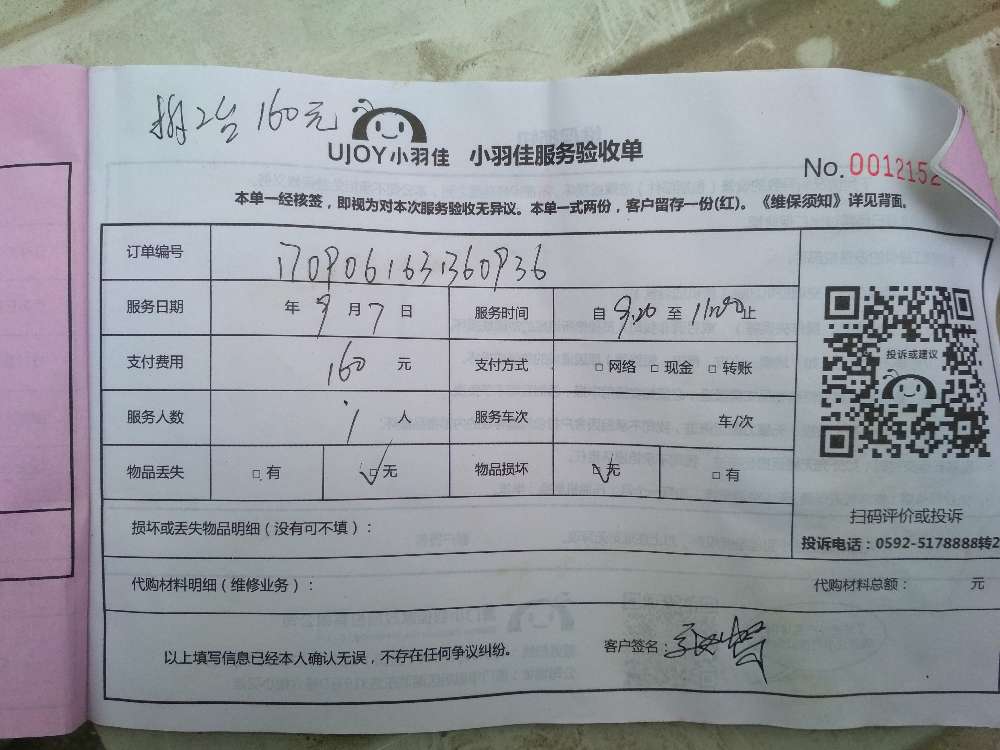 拆2台160元
UJOY小羽佳 小羽佳服务验收单
No. 0012152
本单一经核签，即视为对本次服务验收无异议。本单一式两份，客户留存一份(红)。《维保须知》详见背面。
订单编号 1709061631360936
服务日期 年 9 月 7 日 服务时间 自 9.20 至 止
支付费用 160 元 支付方式 □网络 □现金 □转账
投诉或建议
服务人数 1 人 服务车次 车/次
物品丢失 □有 ☑无 物品损坏 ☑无 □有
扫码评价或投诉
损坏或丢失物品明细（没有可不填）：
投诉电话：0592-5178888转2
代购材料明细（维修业务）： 代购材料总额： 元
以上填写信息已经本人确认无误，不存在任何争议纠纷。 客户签名：